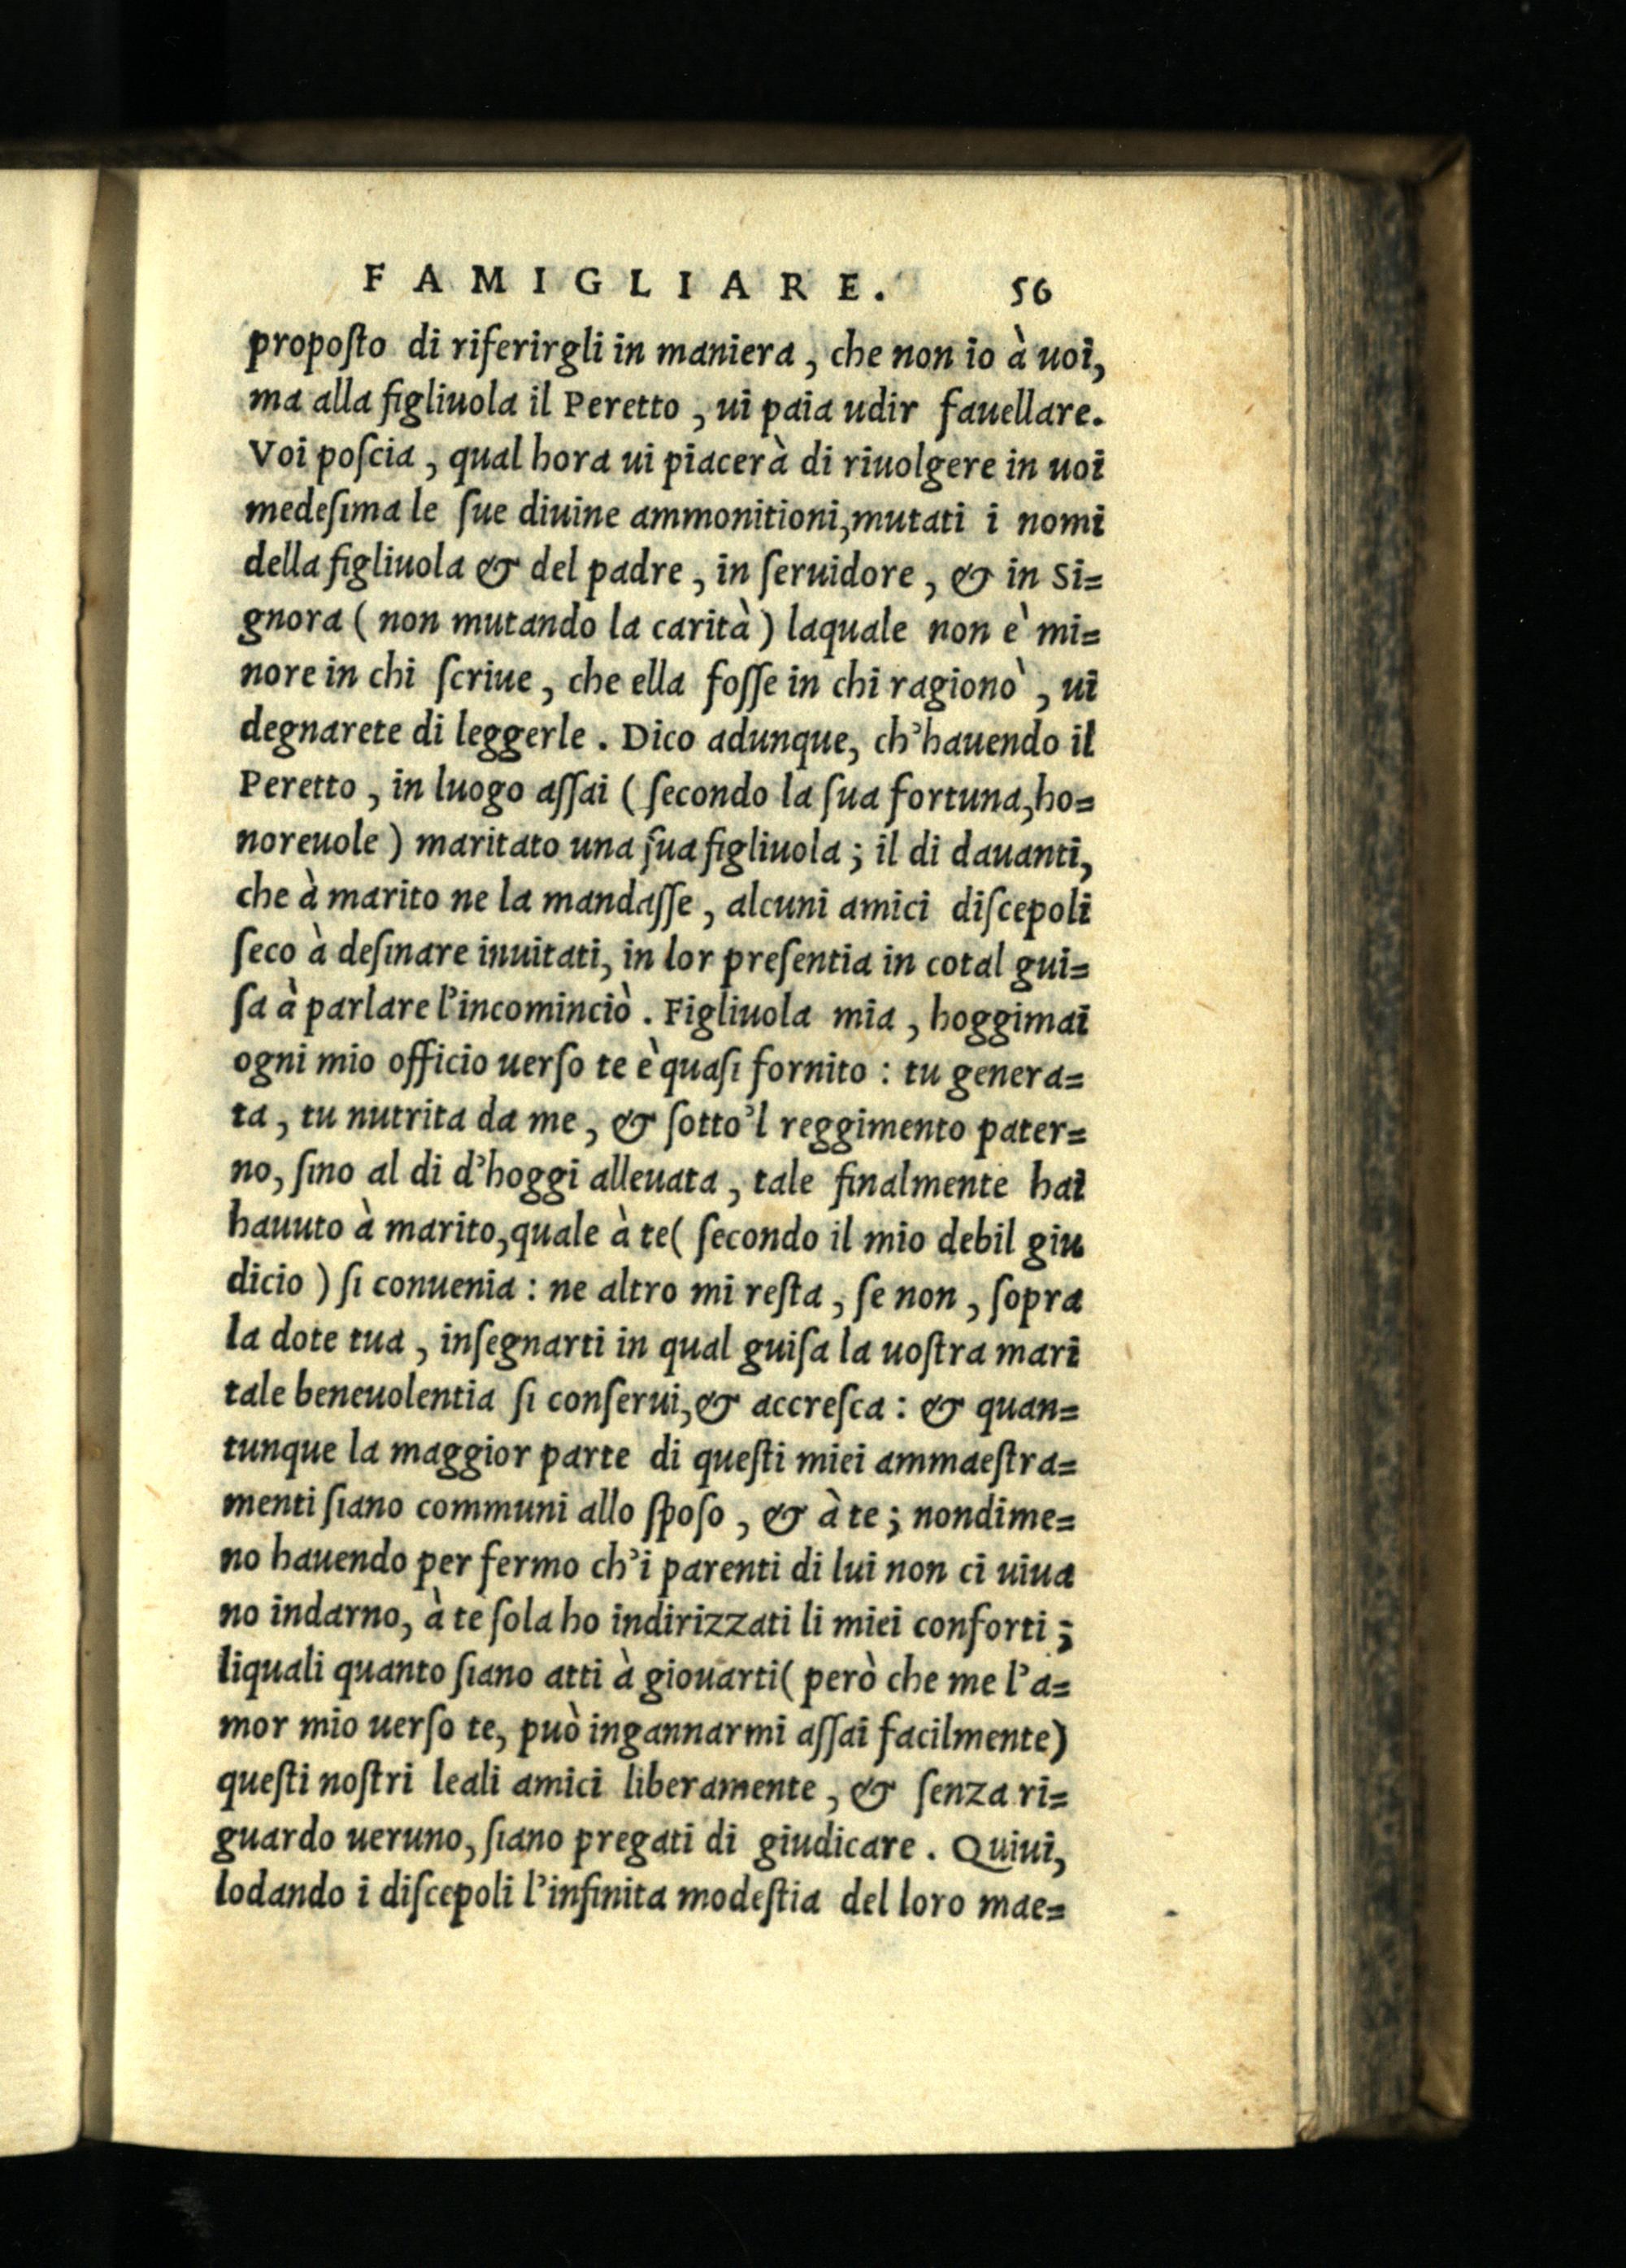 FAMIGLIARE. 56
propoſto di riferirgli in maniera, che non io à uoi,
ma alla figliuola il Peretto, ui paia udir fauellare.
Voi poſcia, qual hora ui piacerà di riuolgere in uoi
medeſima le ſue diuine ammonitioni, mutati i nomi
della figliuola & del padre, in ſeruidore, & in Si=
gnora (non mutando la carità) laquale non è mi=
nore in chi ſcriue, che ella foſſe in chi ragionò, ui
degnarete di leggerle. Dico adunque, ch'hauendo il
Peretto, in luogo aſſai (ſecondo la ſua fortuna, ho=
noreuole) maritato una ſua figliuola; il di dauanti,
che à marito ne la mandaſſe, alcuni amici diſcepoli
ſeco à deſinare inuitati, in lor preſentia in cotal gui=
ſa à parlare l'incominciò. Figliuola mia, hoggimai
ogni mio officio uerſo te è quaſi fornito: tu genera=
ta, tu nutrita da me, & ſotto'l reggimento pater=
no, ſino al di d'hoggi alleuata, tale finalmente hai
hauuto à marito, quale à te (ſecondo il mio debil giu
dicio) ſi conuenia: ne altro mi reſta, ſe non, ſopra
la dote tua, inſegnarti in qual guiſa la uoſtra mari
tale beneuolentia ſi conſerui, & accreſca: & quan=
tunque la maggior parte di queſti miei ammaeſtra=
menti ſiano communi allo ſpoſo, & à te; nondime=
no hauendo per fermo ch'i parenti di lui non ci uiua
no indarno, à te ſola ho indirizzati li miei conforti;
liquali quanto ſiano atti à giouarti (però che me l'a=
mor mio uerſo te, può ingannarmi aſſai facilmente)
queſti noſtri leali amici liberamente, & ſenza ri=
guardo ueruno, ſiano pregati di giudicare. Quiui,
lodando i diſcepoli l'infinita modeſtia del loro mae=